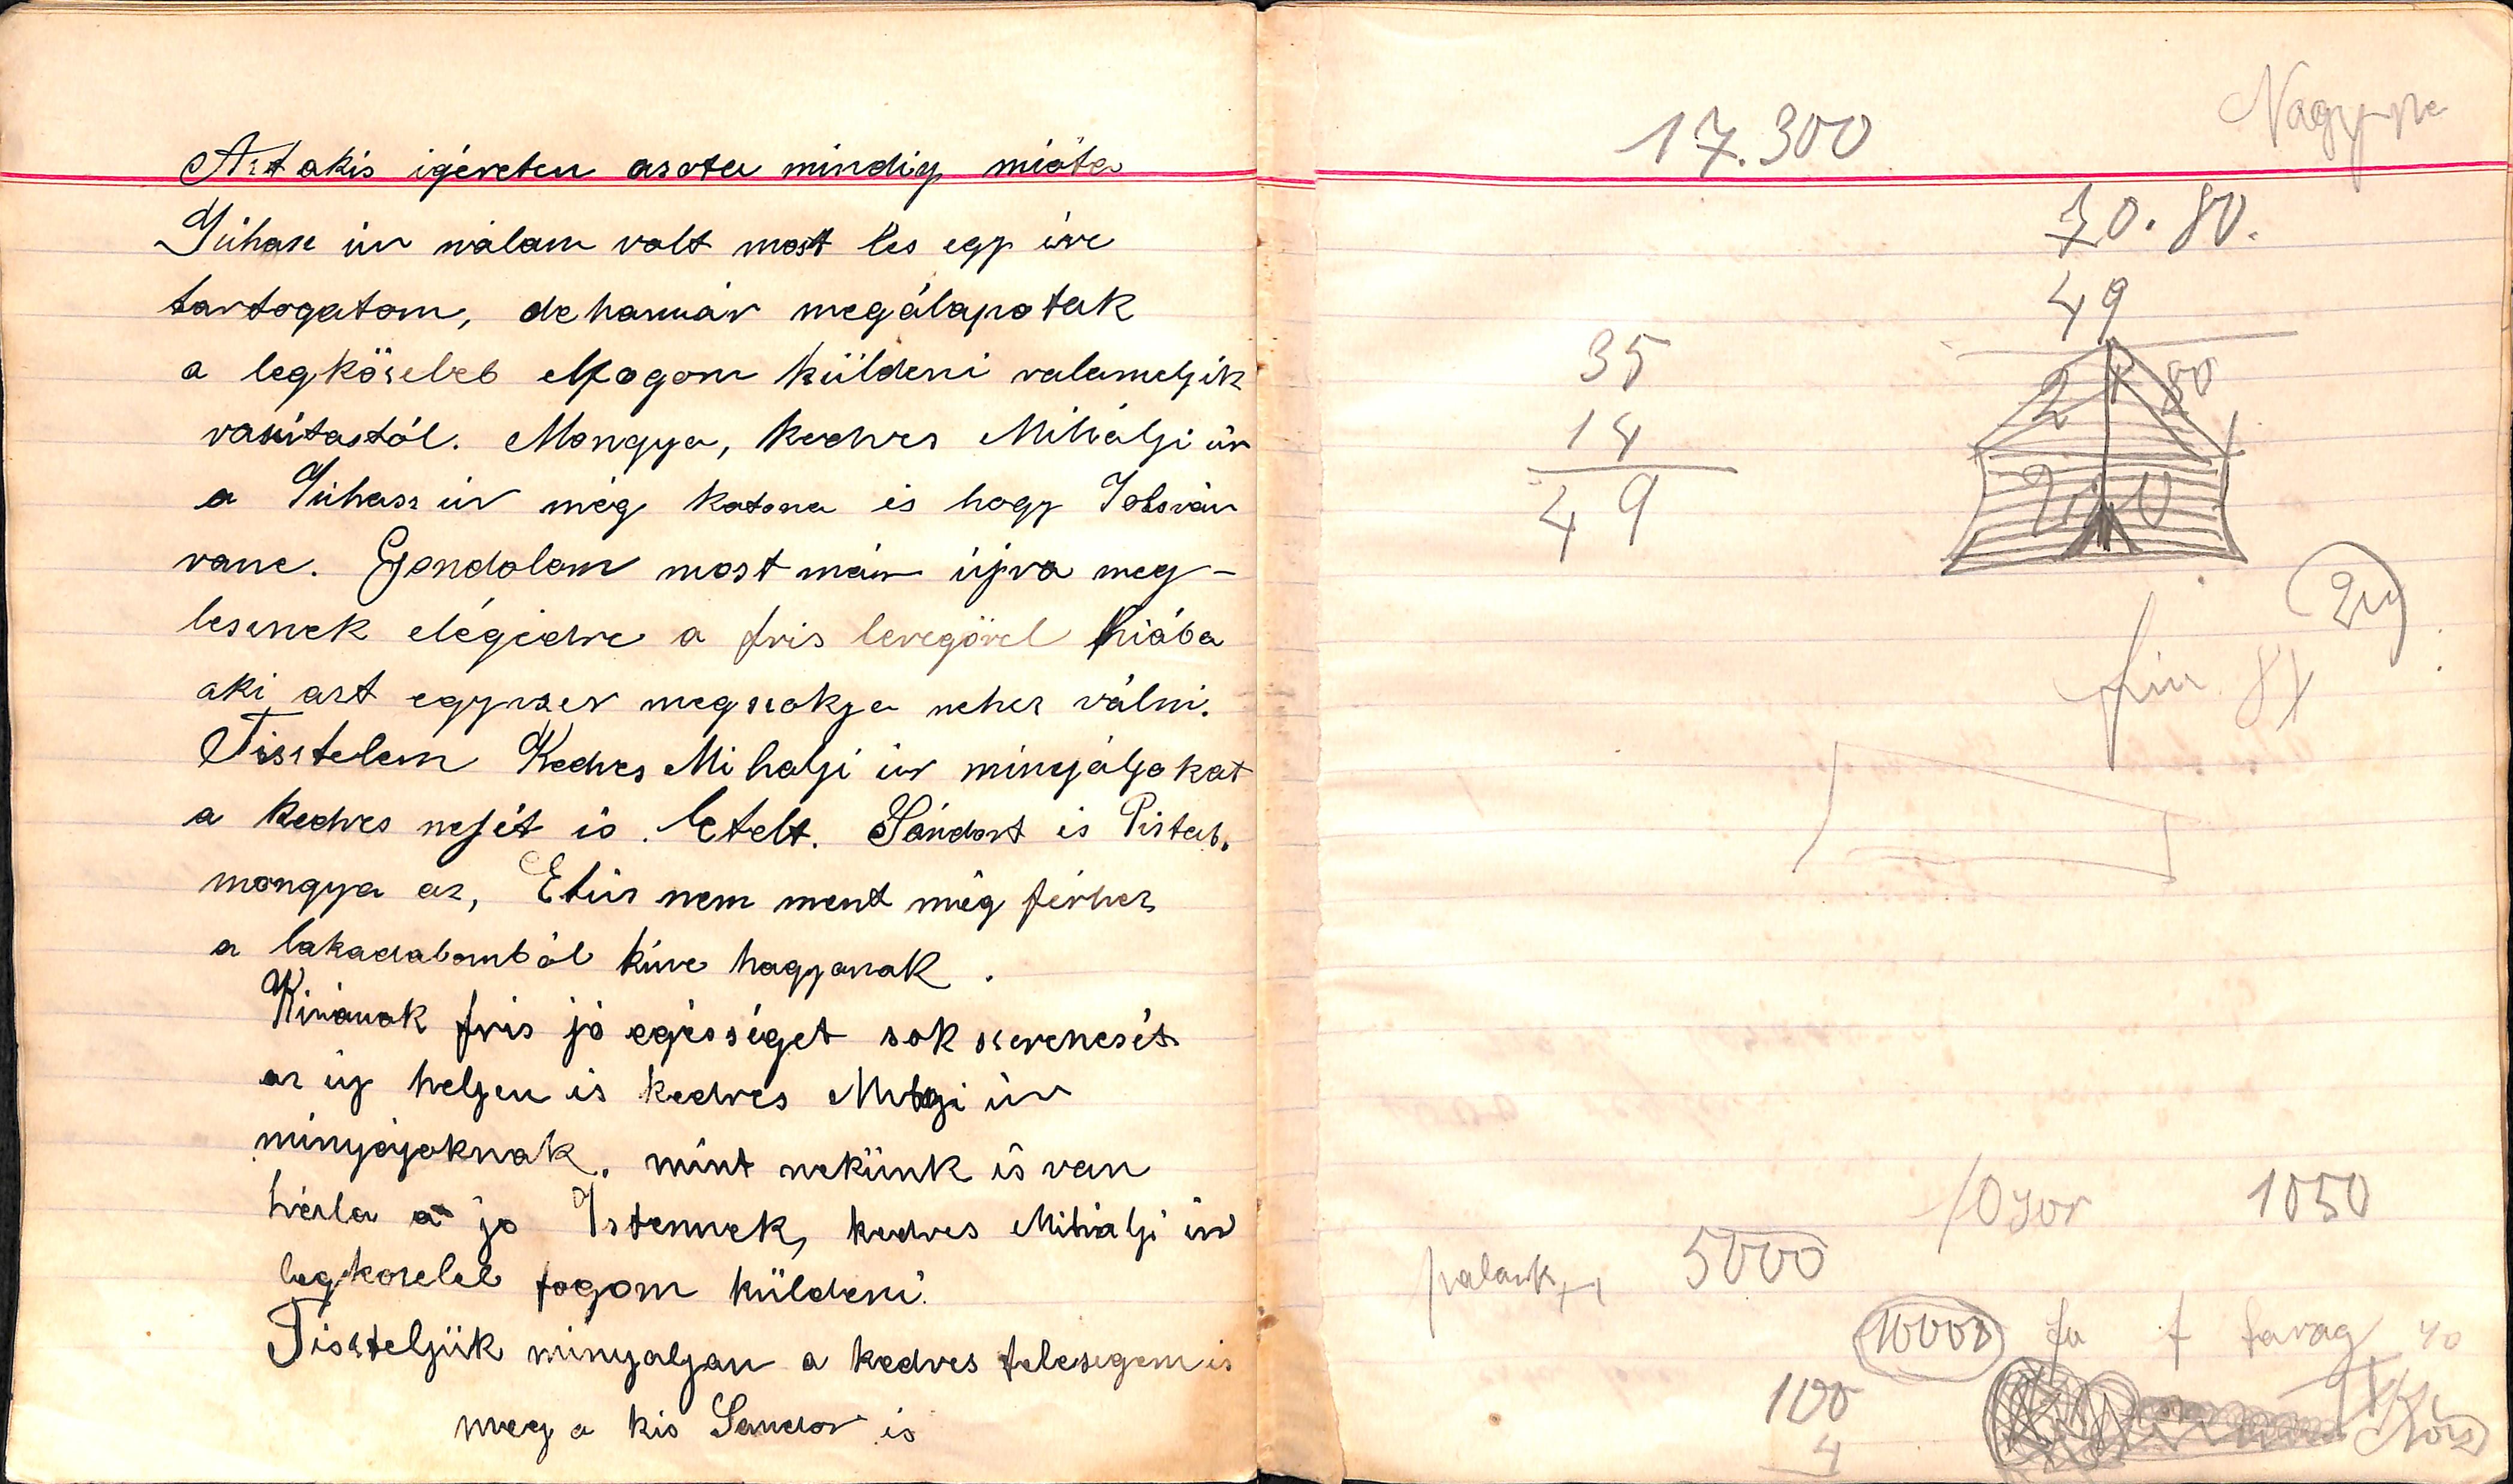 Azt akis igéreten azota mindig mióta
Júhasz úr nálam volt most les egy éve
tartogatom, dehamár megálapotak
a legközeleb elfogom küldeni valameljik
vasútastól. Mongya, kedves Mihályi úr
a Júhasz úr még katona is hogy
vane. Gondolom most már újra meg-
lesznek elégedve a fris levegövel hiába
aki azt egyszer megszokja nehez válni.
Tisztelem Kedves Mihalyi úr minyályokat
a kedves nejét is. Etelt. Sándort is Pistat.
mongya az, Etús nem ment még férhez
a lakadalomból kive hagyanak.
Kivánok fris jó egésséget sok szerencsét
az új helyen is kedves úr
minyájoknak. mint nekünk is van
hála a jo Istennek, kedves Miháljí úr
legkozeleb fogom küldeni.
Tiszteljük minyaljan a kedves felesegem is
meg a kis Sandor is
17.300
70.80.
49
35
14
49
2 80
84
1050
5000
10000
40
100
4